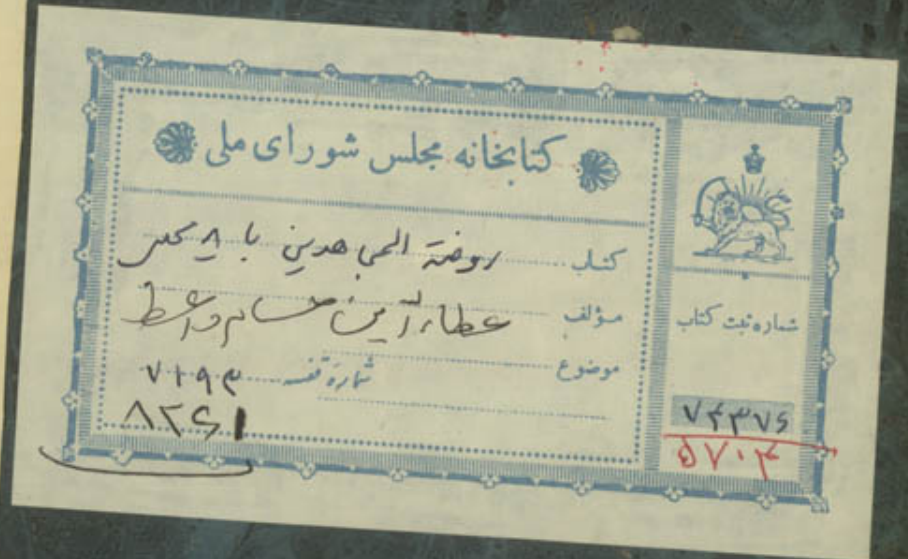 کتابخانه مجلس شورای ملی
کتاب روضة المجاهدین با
مؤلف عطاءالدین حسام واعظ
موضوع
شماره قفسه ۷۱۹۳
۸۲۶۱
شماره ثبت کتاب
۷۴۳۷۶
۵۷۰۳